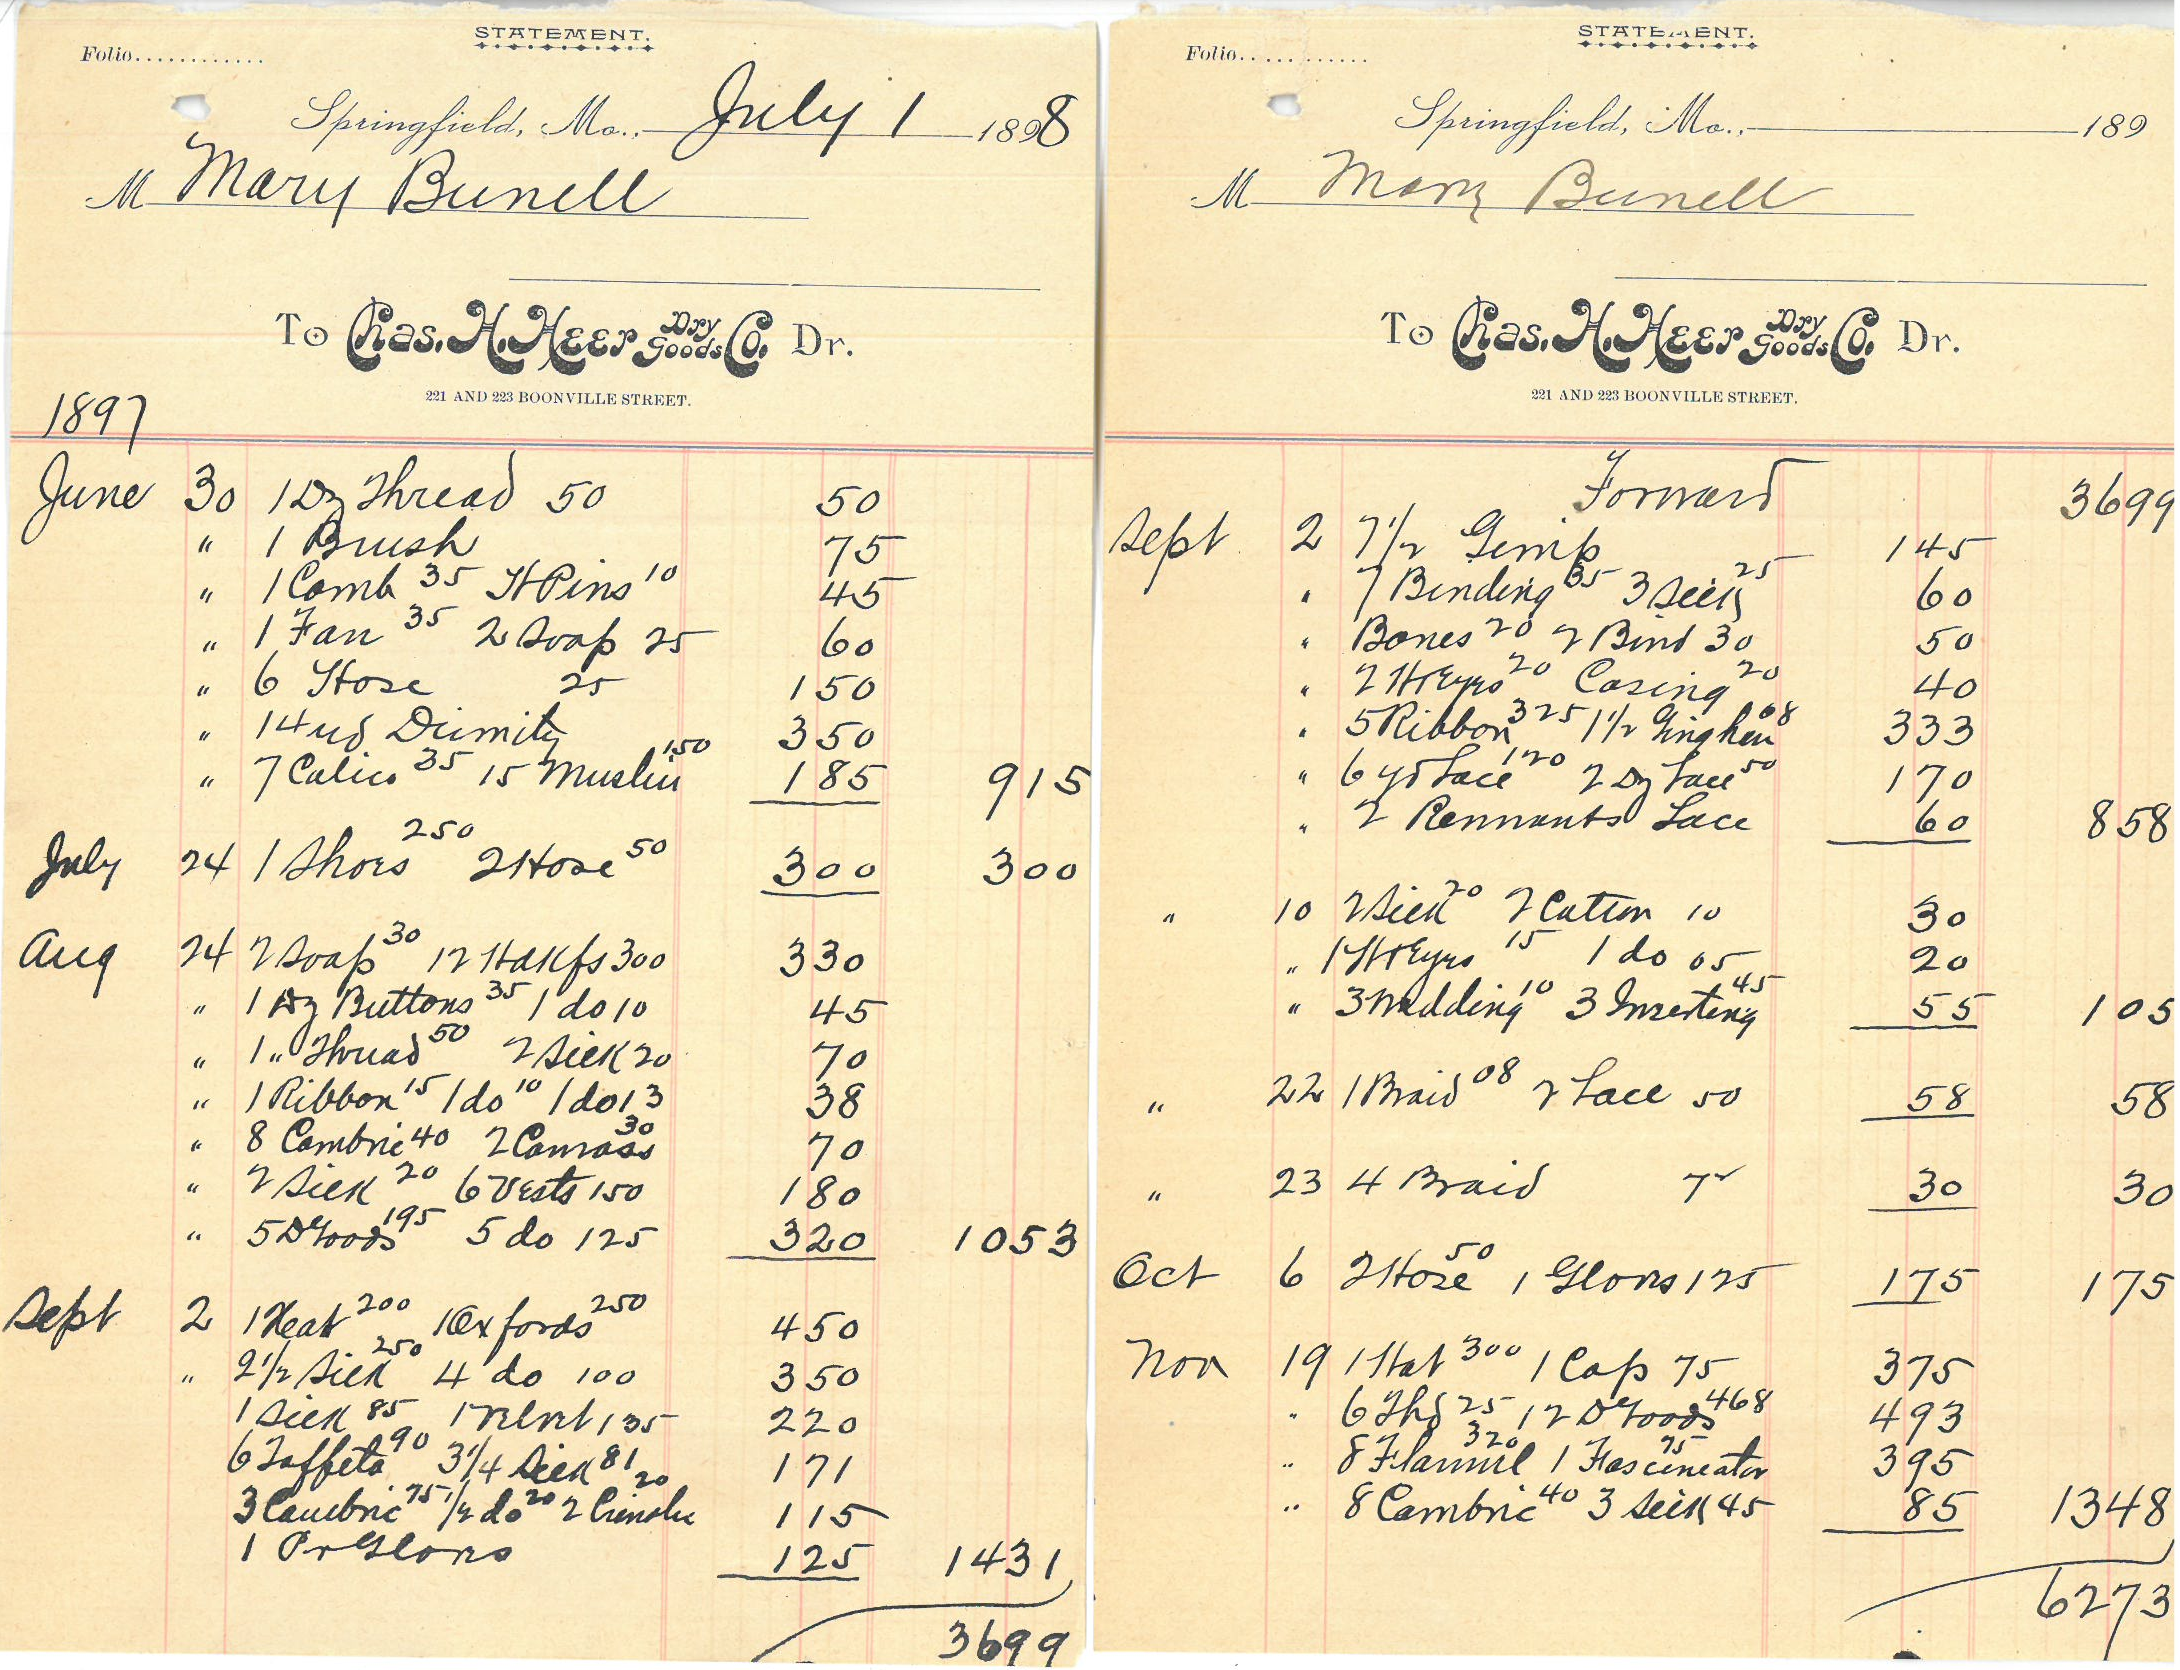 STATEMENT.
Folio............
Springfield, Mo., July 1 1898
M Mary Bunell
To Chas. H. Heer Dry Goods Co. Dr.
221 AND 223 BOONVILLE STREET.
1897
June 30 1 Dz Thread 50 50
" 1 Brush 75
" 1 Comb 35 H Pins 10 45
" 1 Fan 35 2 Soap 25 60
" 6 Hose 25 150
" 14 yd Dimity 350
" 7 Calico 35 15 Muslin 150 185 915
July 24 1 Shoes 250 2 Hose 50 300 300
Aug 24 2 Soap 30 12 Hdkfs 300 330
" 1 Dz Buttons 35 1 do 10 45
" 1 " Thread 50 2 Silk 20 70
" 1 Ribbon 15 1 do 10 1 do 13 38
" 8 Cambric 40 2 Canvass 30 70
" 2 Silk 20 6 Vests 150 180
" 5 D Goods 195 5 do 125 320 1053
Sept 2 1 Heat 200 1 Oxfords 250 450
" 2 1/2 Silk 250 4 do 100 350
1 Silk 85 1 Velvet 135 220
6 Taffeta 90 3 1/4 Silk 81 171
3 Cambric 75 1/2 do 20 2 20 115
1 Pr Gloves 125 1431
3699
STATEMENT.
Folio............
Springfield, Mo., 189
M Mary Bunell
To Chas. H. Heer Dry Goods Co. Dr.
221 AND 223 BOONVILLE STREET.
Forward 3699
Sept 2 7 1/2 Gimp 145
" 7 Binding 35 3 Silk 25 60
" Bones 20 2 Bind 30 50
" 2 H&Eyes 20 Casing 20 40
" 5 Ribbon 325 1 1/2 Gingham 08 333
" 6 yd Lace 120 2 Dz Lace 50 170
" 2 Remnants Lace 60 858
" 10 2 Silk 20 2 Cotton 10 30
" 1 H&Eyes 15 1 do 05 20
" 3 Wadding 10 3 Inserting 45 55 105
" 22 1 Braid 08 2 Lace 50 58 58
" 23 4 Braid 7 1/2 30 30
Oct 6 2 Hose 50 1 Gloves 125 175 175
Nov 19 1 Hat 300 1 Cap 75 375
" 6 Thd 25 12 D Goods 468 493
" 8 Flannel 320 1 Fascinator 75 395
" 8 Cambric 40 3 Silk 45 85 1348
6273